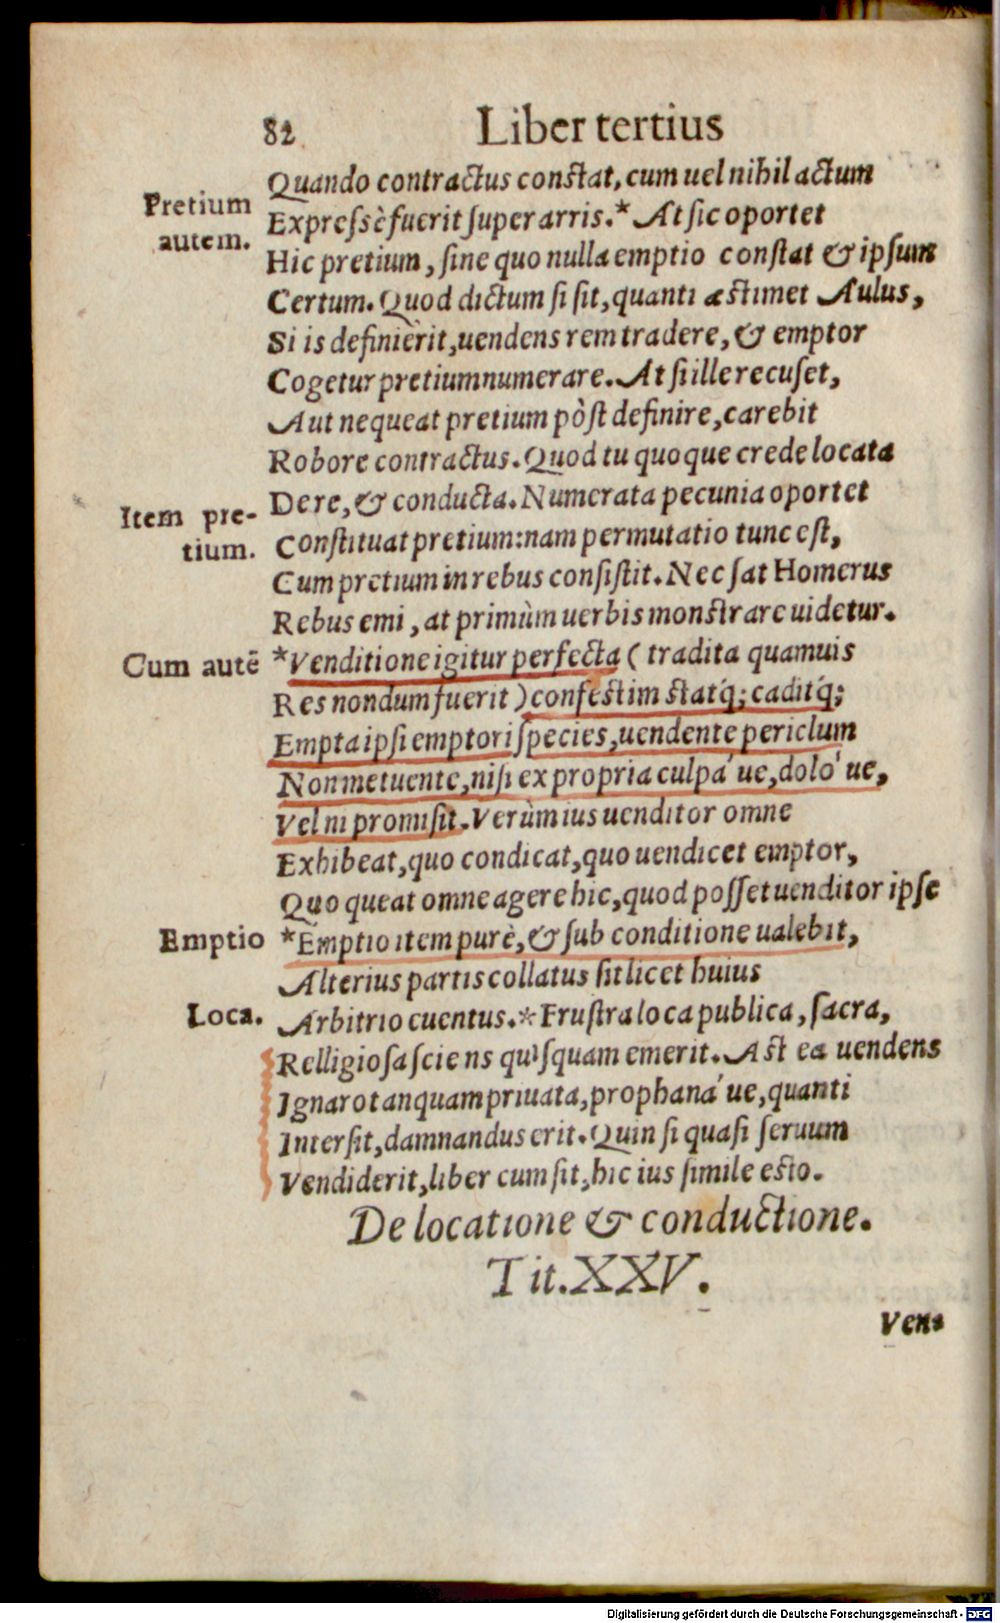 82 Liber tertius
Quando contractus constat, cum uel nihil actum
Pretium autem.
Expressè fuerit super arris.* At sic oportet
Hic pretium, sine quo nulla emptio constat & ipsum
Certum. Quod dictum si sit, quanti æstimet Aulus,
Si is definierit, uendens rem tradere, & emptor
Cogetur pretium numerare. At si ille recuset,
Aut nequeat pretium pòst definire, carebit
Robore contractus. Quod tu quoque crede locata
Item pretium.
Dere, & conducta. Numerata pecunia oportet
Constituat pretium: nam permutatio tunc est,
Cum pretium in rebus consistit. Nec sat Homerus
Rebus emi, at primùm uerbis monstrare uidetur.
Cum autē
*Venditione igitur perfecta ( tradita quamuis
Res nondum fuerit ) confestim statq́; caditq́;
Empta ipsi emptori species, uendente periclum
Non metuente, nisi ex propria culpa´ue, dolo´ue,
Vel ni promisit. Verùm ius uenditor omne
Exhibeat, quo condicat, quo uendicet emptor,
Quo queat omne agere hic, quod posset uenditor ipse
Emptio
*Emptio item purè, & sub conditione ualebit,
Alterius partis collatus sit licet huius
Loca.
Arbitrio euentus.* Frustra loca publica, sacra,
Relligiosa sciens quisquam emerit. Ast ea uendens
Ignaro tanquam priuata, prophana´ue, quanti
Intersit, damnandus erit. Quin si quasi seruum
Vendiderit, liber cum sit, hic ius simile esto.
De locatione & conductione.
Tit. XXV.
Ven-
Digitalisierung gefördert durch die Deutsche Forschungsgemeinschaft - DFG